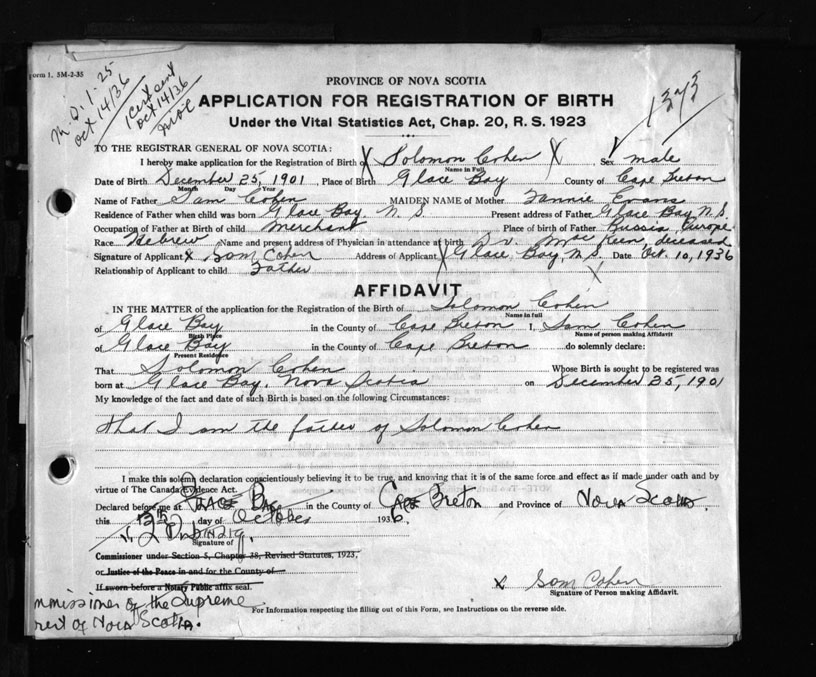 orm 1. 5M-2-35
M.D. 1-25
Oct 14/36
Cert sent
Oct 14/36
PROVINCE OF NOVA SCOTIA
APPLICATION FOR REGISTRATION OF BIRTH
Under the Vital Statistics Act, Chap. 20, R. S. 1923
TO THE REGISTRAR GENERAL OF NOVA SCOTIA:
I hereby make application for the Registration of Birth of X Solomon Cohen X Sex male
Name in Full
Date of Birth December 25, 1901, Place of Birth Glace Bay County of Cape Breton
Month Day Year
Name of Father Sam Cohen MAIDEN NAME of Mother Fannie Evans
Residence of Father when child was born Glace Bay. N. S. Present address of Father Glace Bay N.S.
Occupation of Father at Birth of child Merchant Place of birth of Father Russia, Europe
Race Hebrew Name and present address of Physician in attendance at birth Dr. MacKeen, deceased
Signature of Applicant X Sam Cohen Address of Applicant X Glace Bay, N.S. Date Oct. 10, 1936
Relationship of Applicant to child Father X
AFFIDAVIT
IN THE MATTER of the application for the Registration of the Birth of Solomon Cohen
Name in full
of Glace Bay in the County of Cape Breton I, Sam Cohen
Birth Place Name of person making Affidavit
of Glace Bay in the County of Cape Breton do solemnly declare:
Present Residence
That Solomon Cohen Whose Birth is sought to be registered was
born at Glace Bay, Nova Scotia on December 25, 1901
My knowledge of the fact and date of such Birth is based on the following Circumstances:
that I am the father of Solomon Cohen
I make this solemn declaration conscientiously believing it to be true, and knowing that it is of the same force and effect as if made under oath and by
virtue of The Canada Evidence Act.
Declared before me at Glace Bay in the County of Cape Breton and Province of Nova Scotia.
this day of October 1936.
Signature of
Commissioner under Section 5, Chapter 38, Revised Statutes, 1923,
or Justice of the Peace in and for the County of
If sworn before a Notary Public affix seal.
X Sam Cohen
Signature of Person making Affidavit.
mmissioner of the Supreme
For Information respecting the filling out of this Form, see Instructions on the reverse side.
of Nova Scotia.